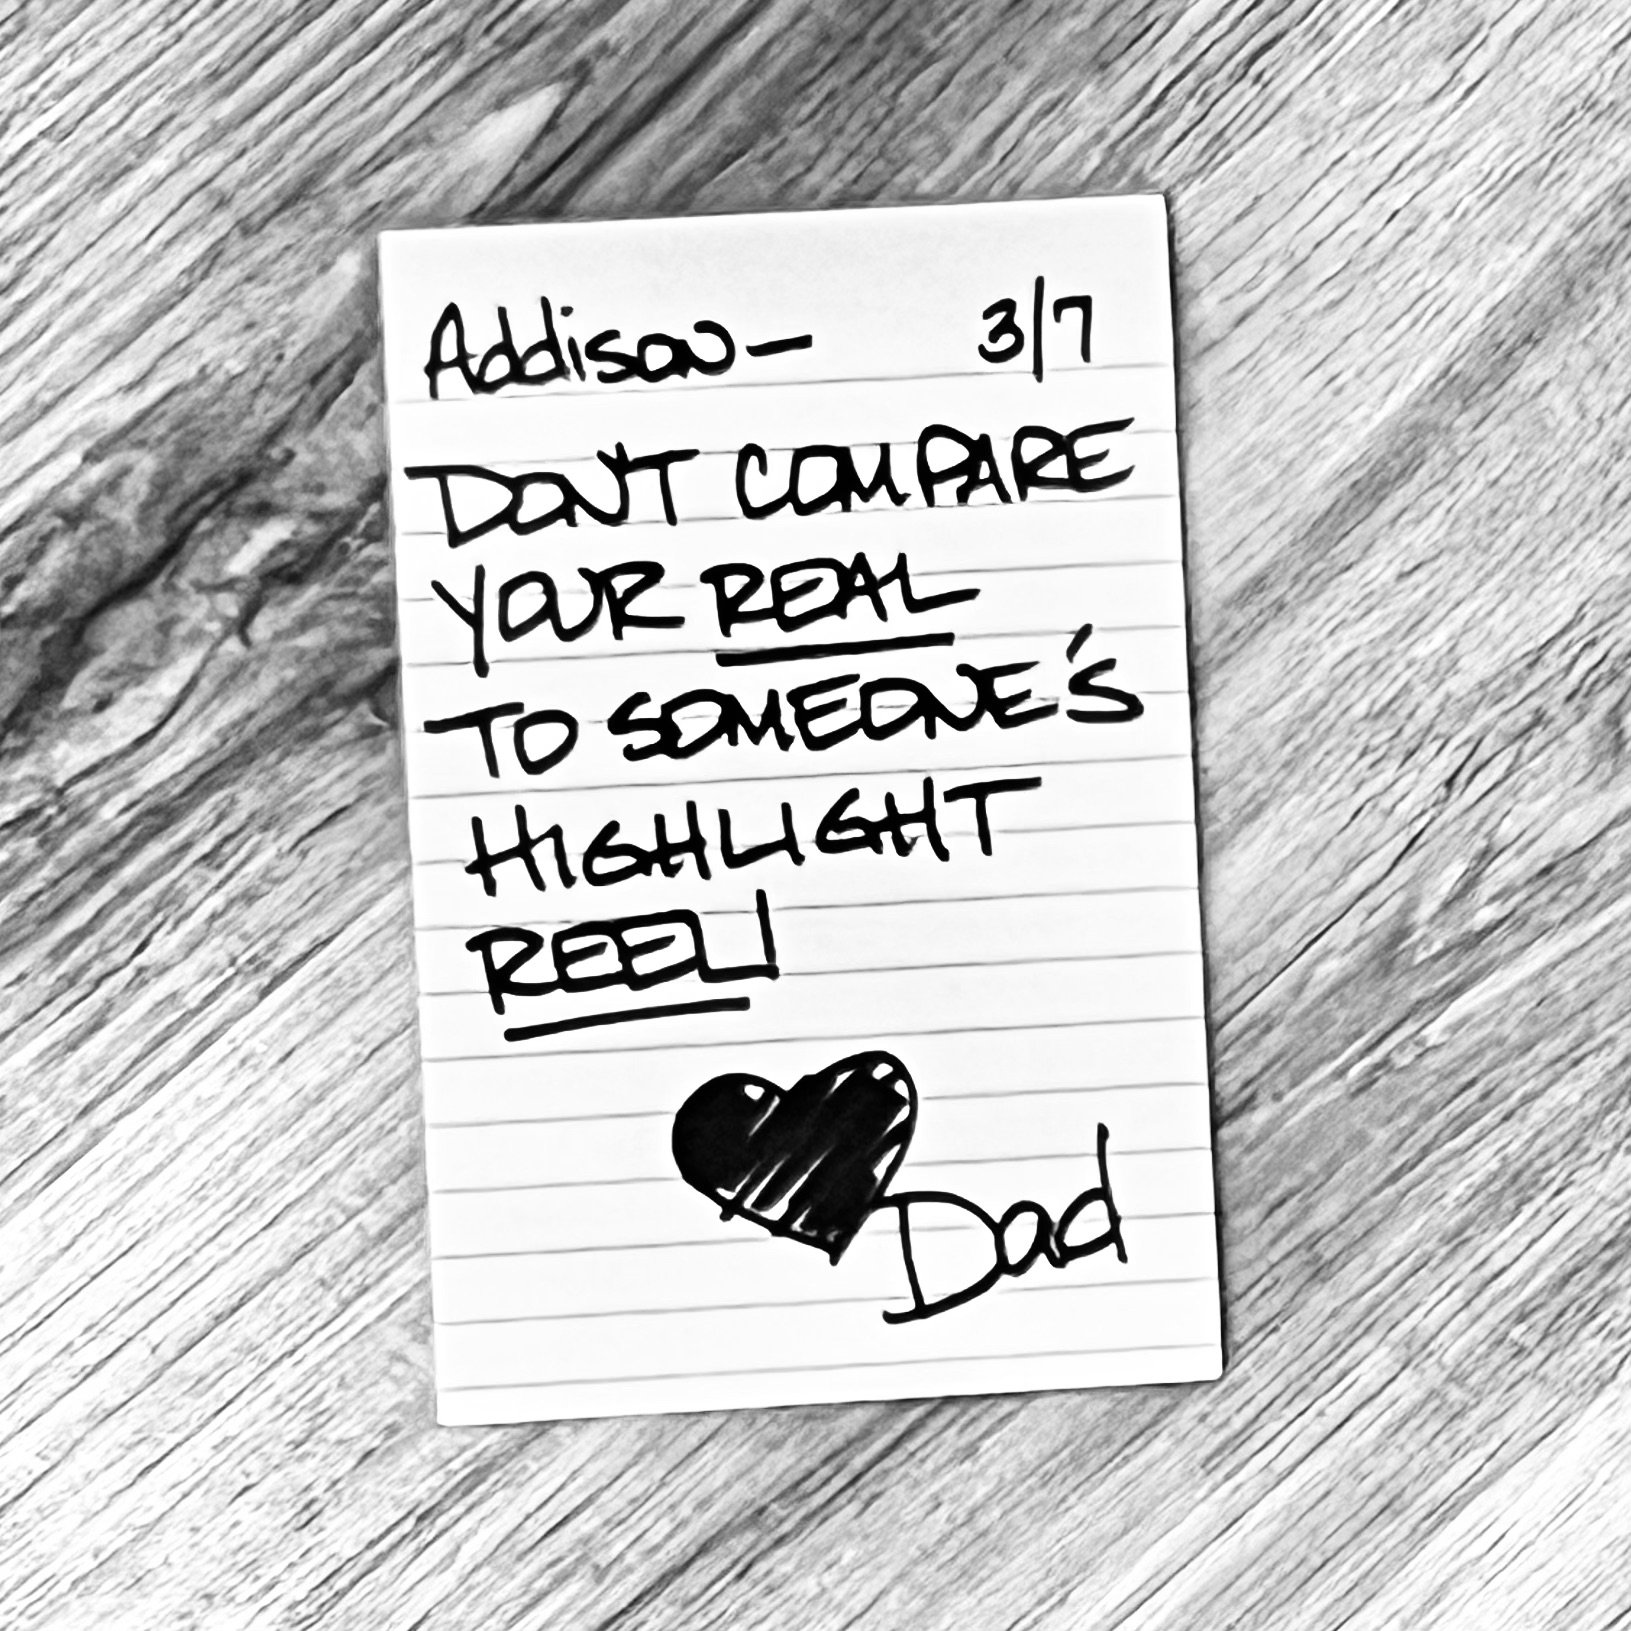 Addison— 3/7
DON'T COMPARE
YOUR REAL
TO SOMEONE'S
HIGHLIGHT
REEL!
Dad